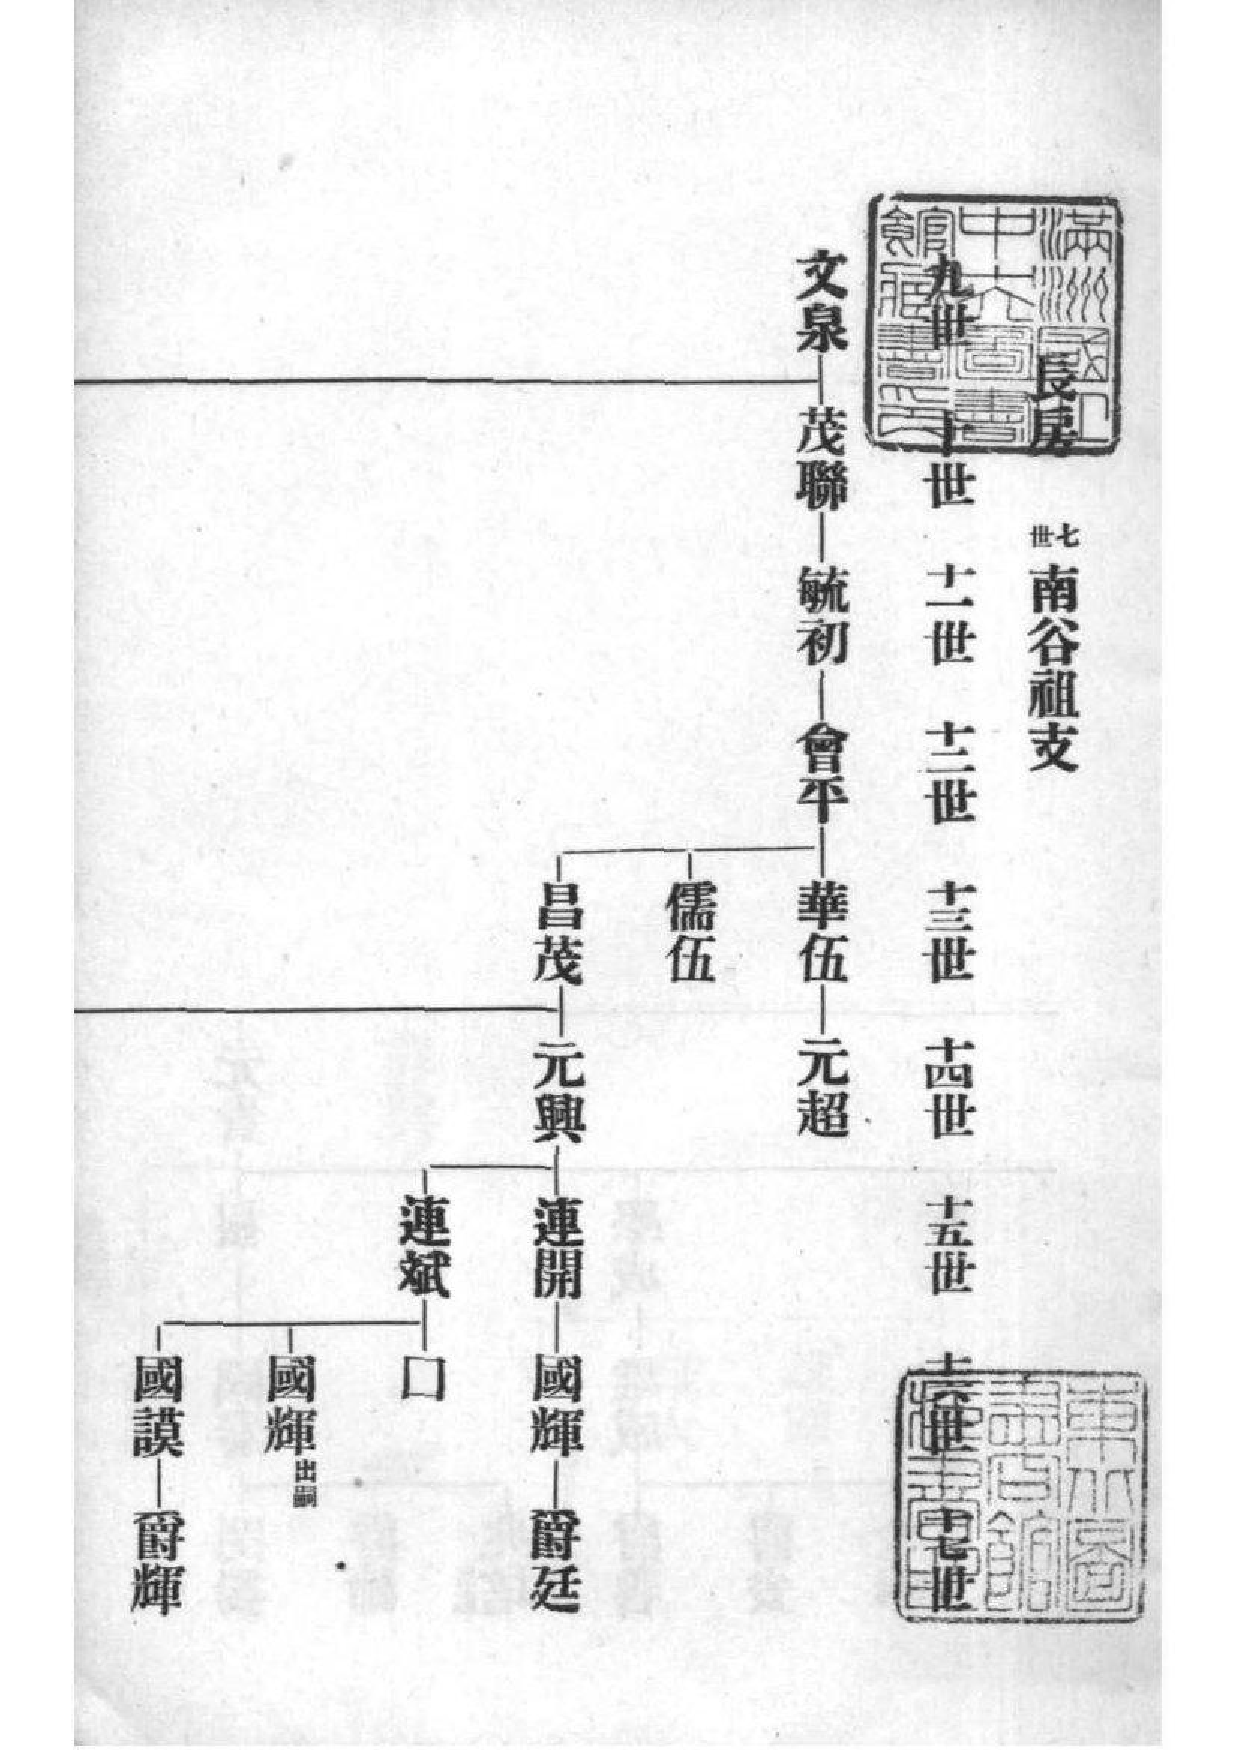 長房 七世 南谷祖支
九世 十世 十一世 十二世 十三世 十四世 十五世 十六世 十七世
文泉 茂聯 毓初 會平 華伍 元超
儒伍
昌茂 元興 連開 國輝 爵廷
連斌 口
國輝 出嗣
國謨 爵輝
滿洲國立
中央圖書
館藏書之印
東北圖
書館